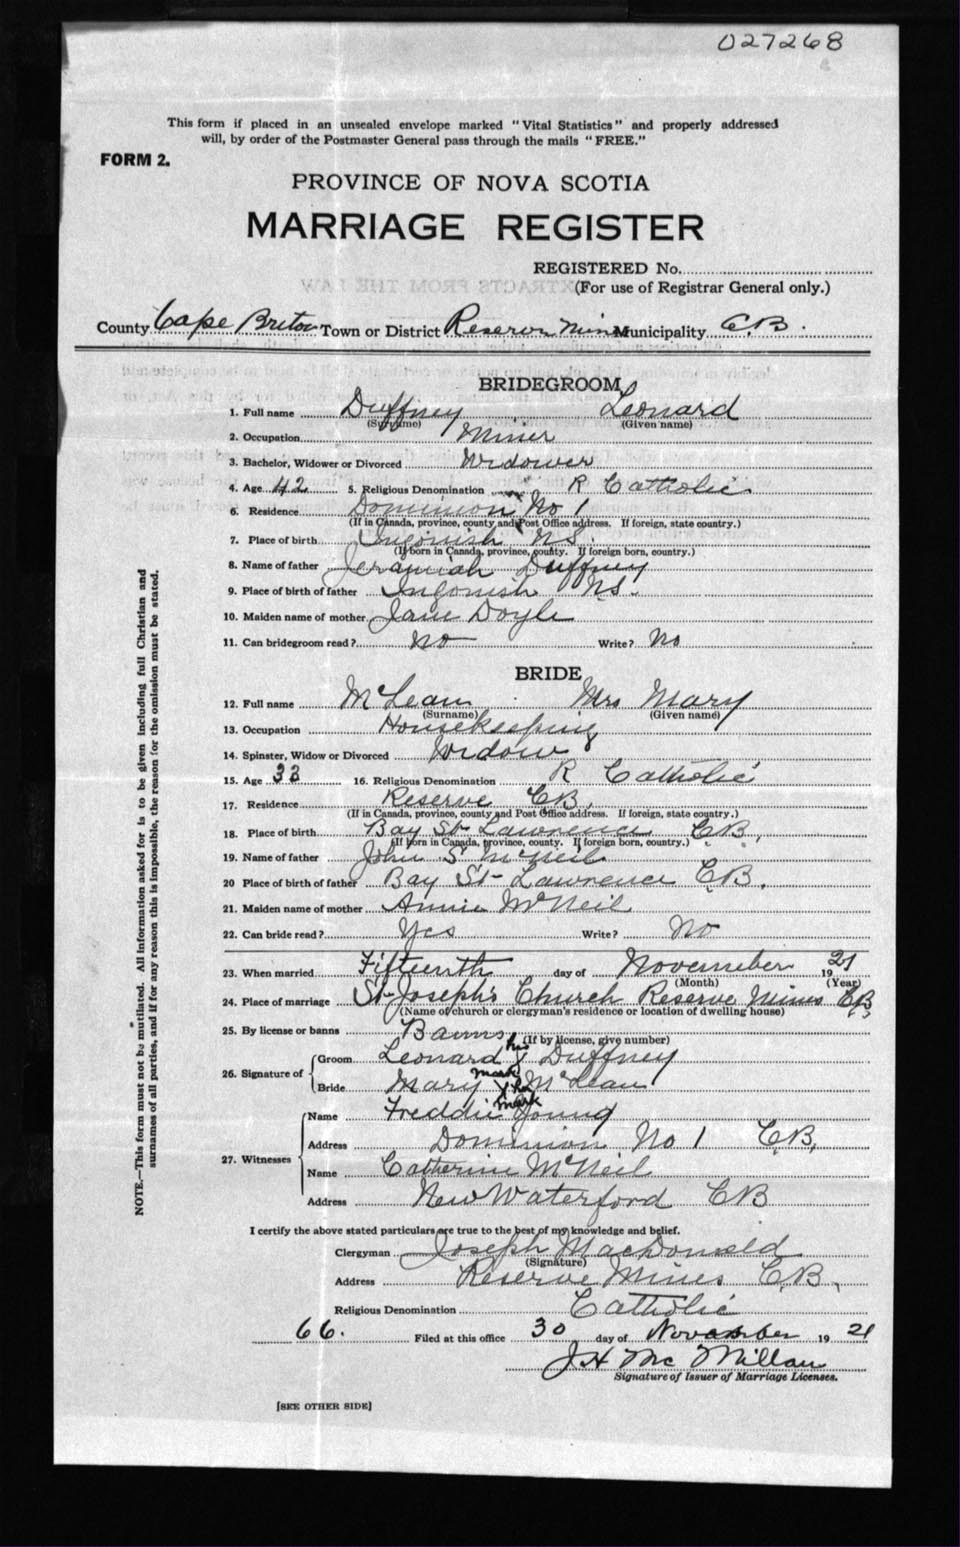 027268
This form if placed in an unsealed envelope marked "Vital Statistics" and properly addressed
will, by order of the Postmaster General pass through the mails "FREE."
FORM 2.
PROVINCE OF NOVA SCOTIA
MARRIAGE REGISTER
REGISTERED No.
(For use of Registrar General only.)
County Cape Breton Town or District Reserve Mines Municipality C.B.
BRIDEGROOM
1. Full name Duffney Leonard
(Surname) (Given name)
2. Occupation Miner
3. Bachelor, Widower or Divorced Widower
4. Age 42 5. Religious Denomination R Catholic
6. Residence Dominion No 1
(If in Canada, province, county and Post Office address. If foreign, state country.)
7. Place of birth Ingonish N.S.
(If born in Canada, province, county. If foreign born, country.)
8. Name of father Jeramiah Duffney
9. Place of birth of father Ingonish N.S.
10. Maiden name of mother Jane Doyle
11. Can bridegroom read? No Write? No
BRIDE
12. Full name McLean Mrs Mary
(Surname) (Given name)
13. Occupation Housekeeping
14. Spinster, Widow or Divorced Widow
15. Age 33 16. Religious Denomination R Catholic
17. Residence Reserve C.B.
(If in Canada, province, county and Post Office address. If foreign, state country.)
18. Place of birth Bay St Lawrence C.B.
(If born in Canada, province, county. If foreign born, country.)
19. Name of father John S. McNeil
20 Place of birth of father Bay St Lawrence C.B.
21. Maiden name of mother Annie McNeil
22. Can bride read? Yes Write? No
23. When married Fifteenth day of November 1921
(Month) (Year)
24. Place of marriage St Joseph's Church Reserve Mines C.B.
(Name of church or clergyman's residence or location of dwelling house)
25. By license or banns Banns (If by license, give number)
26. Signature of Groom Leonard his X mark Duffney
Bride Mary her X mark McLean
27. Witnesses Name Freddie Young
Address Dominion No 1 C.B.
Name Catherine McNeil
Address New Waterford C B
I certify the above stated particulars are true to the best of my knowledge and belief.
Clergyman Joseph MacDonald
(Signature)
Address Reserve Mines C.B.
Religious Denomination Catholic
66. Filed at this office 30 day of November 1921
J H McMillan
Signature of Issuer of Marriage Licenses.
[SEE OTHER SIDE]
NOTE.—This form must not be mutilated. All information asked for is to be given including full Christian and
surnames of all parties, and if for any reason this is impossible, the reason for the omission must be stated.